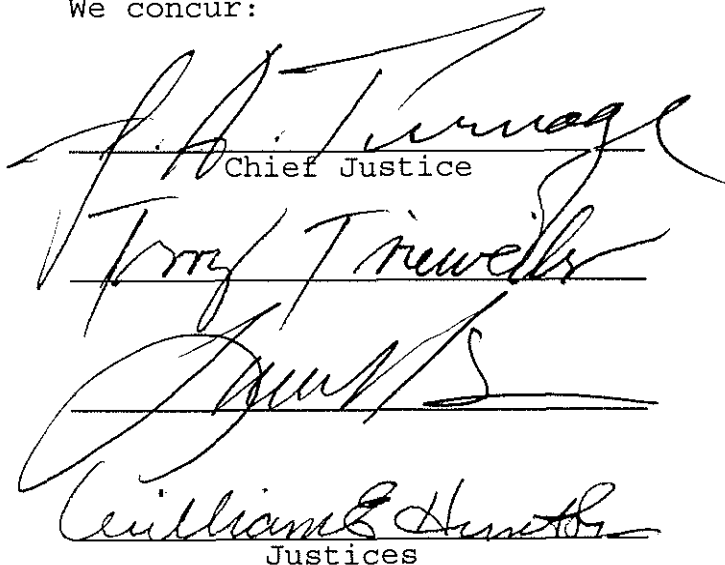 We concur:
J. A. Turnage
Chief Justice
Terry Trieweiler
William E Hunt Sr
Justices